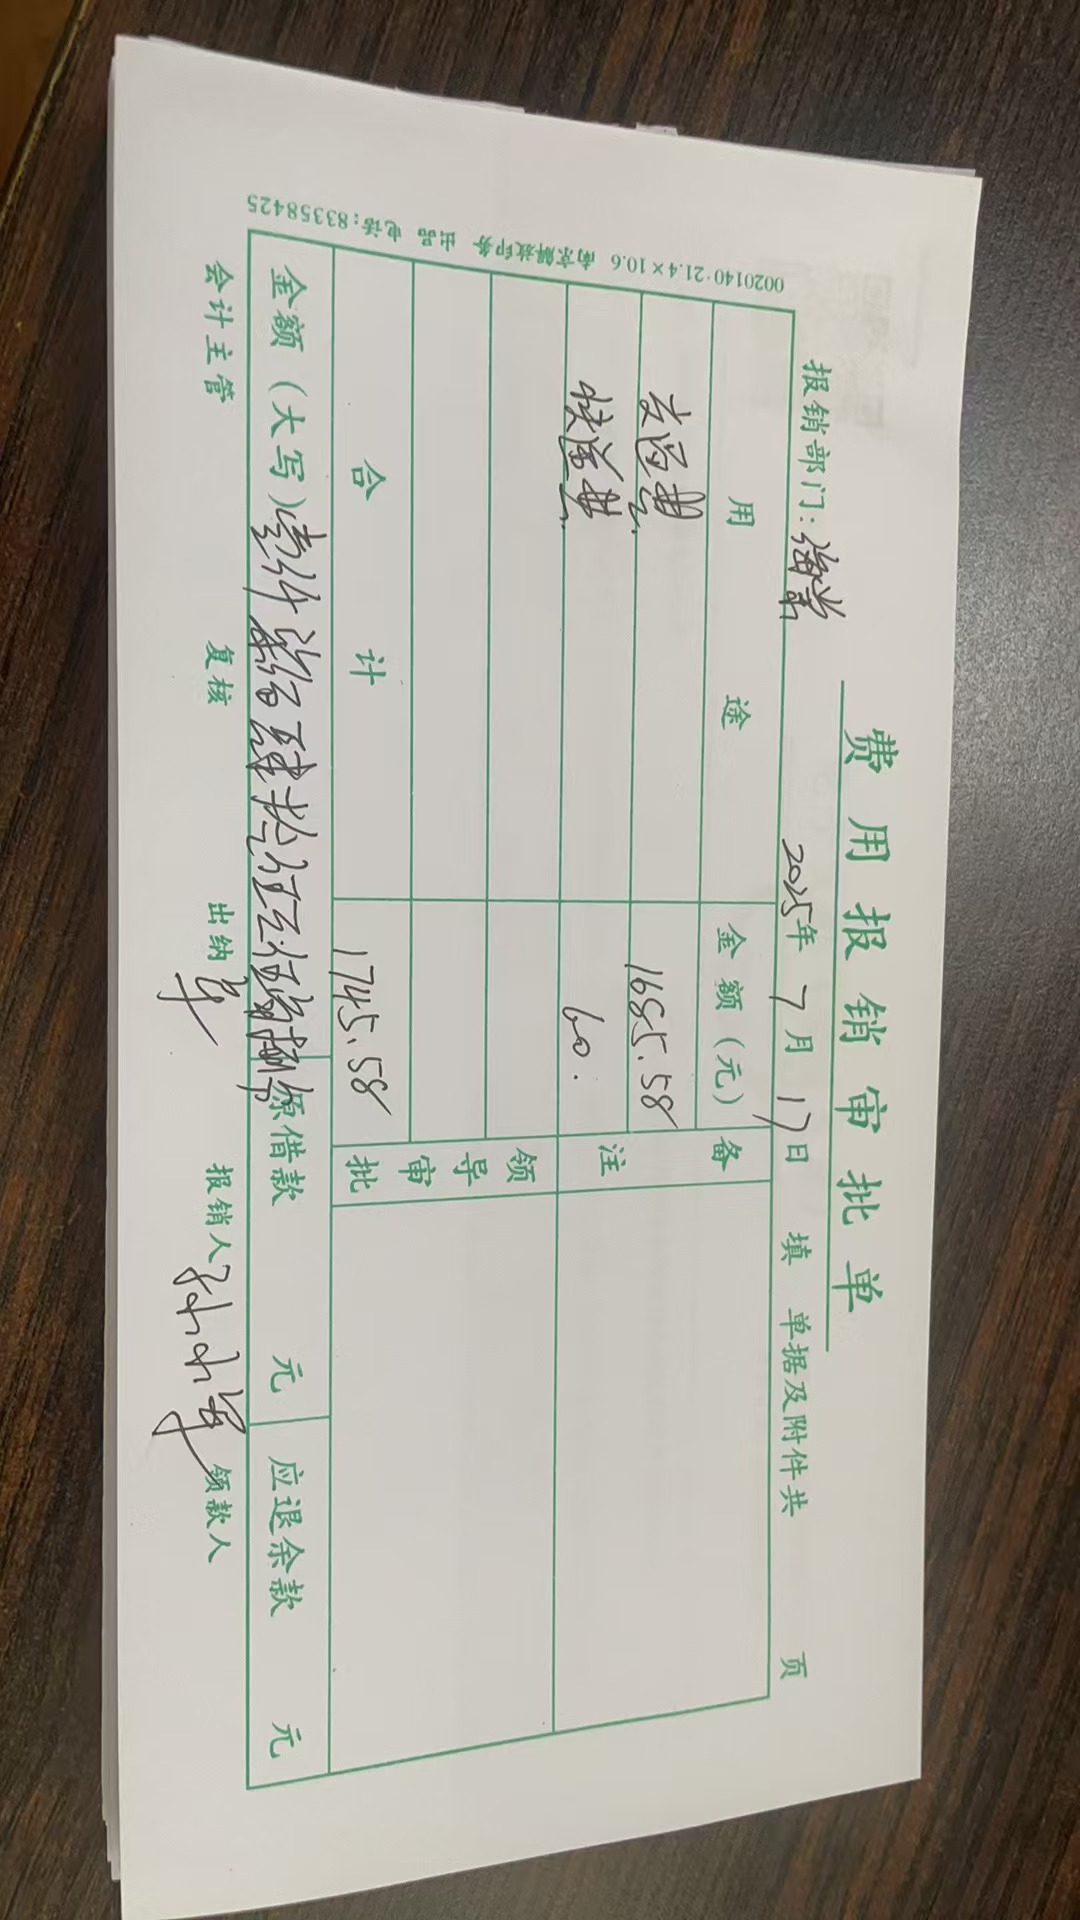 费用报销审批单
报销部门: 海棠 2025年 7月 17日 填 单据及附件共 页
用 途 金额(元) 备注
1685.58
快递费 60.
领导审批
合 计 1745.58
金额(大写)壹仟柒百肆拾伍元伍角捌分 原借款 元 应退余款 元
会计主管 复核 出纳 报销人 领款人
0020140·21.4×10.6 南京解放印务 出品 电话:83358425